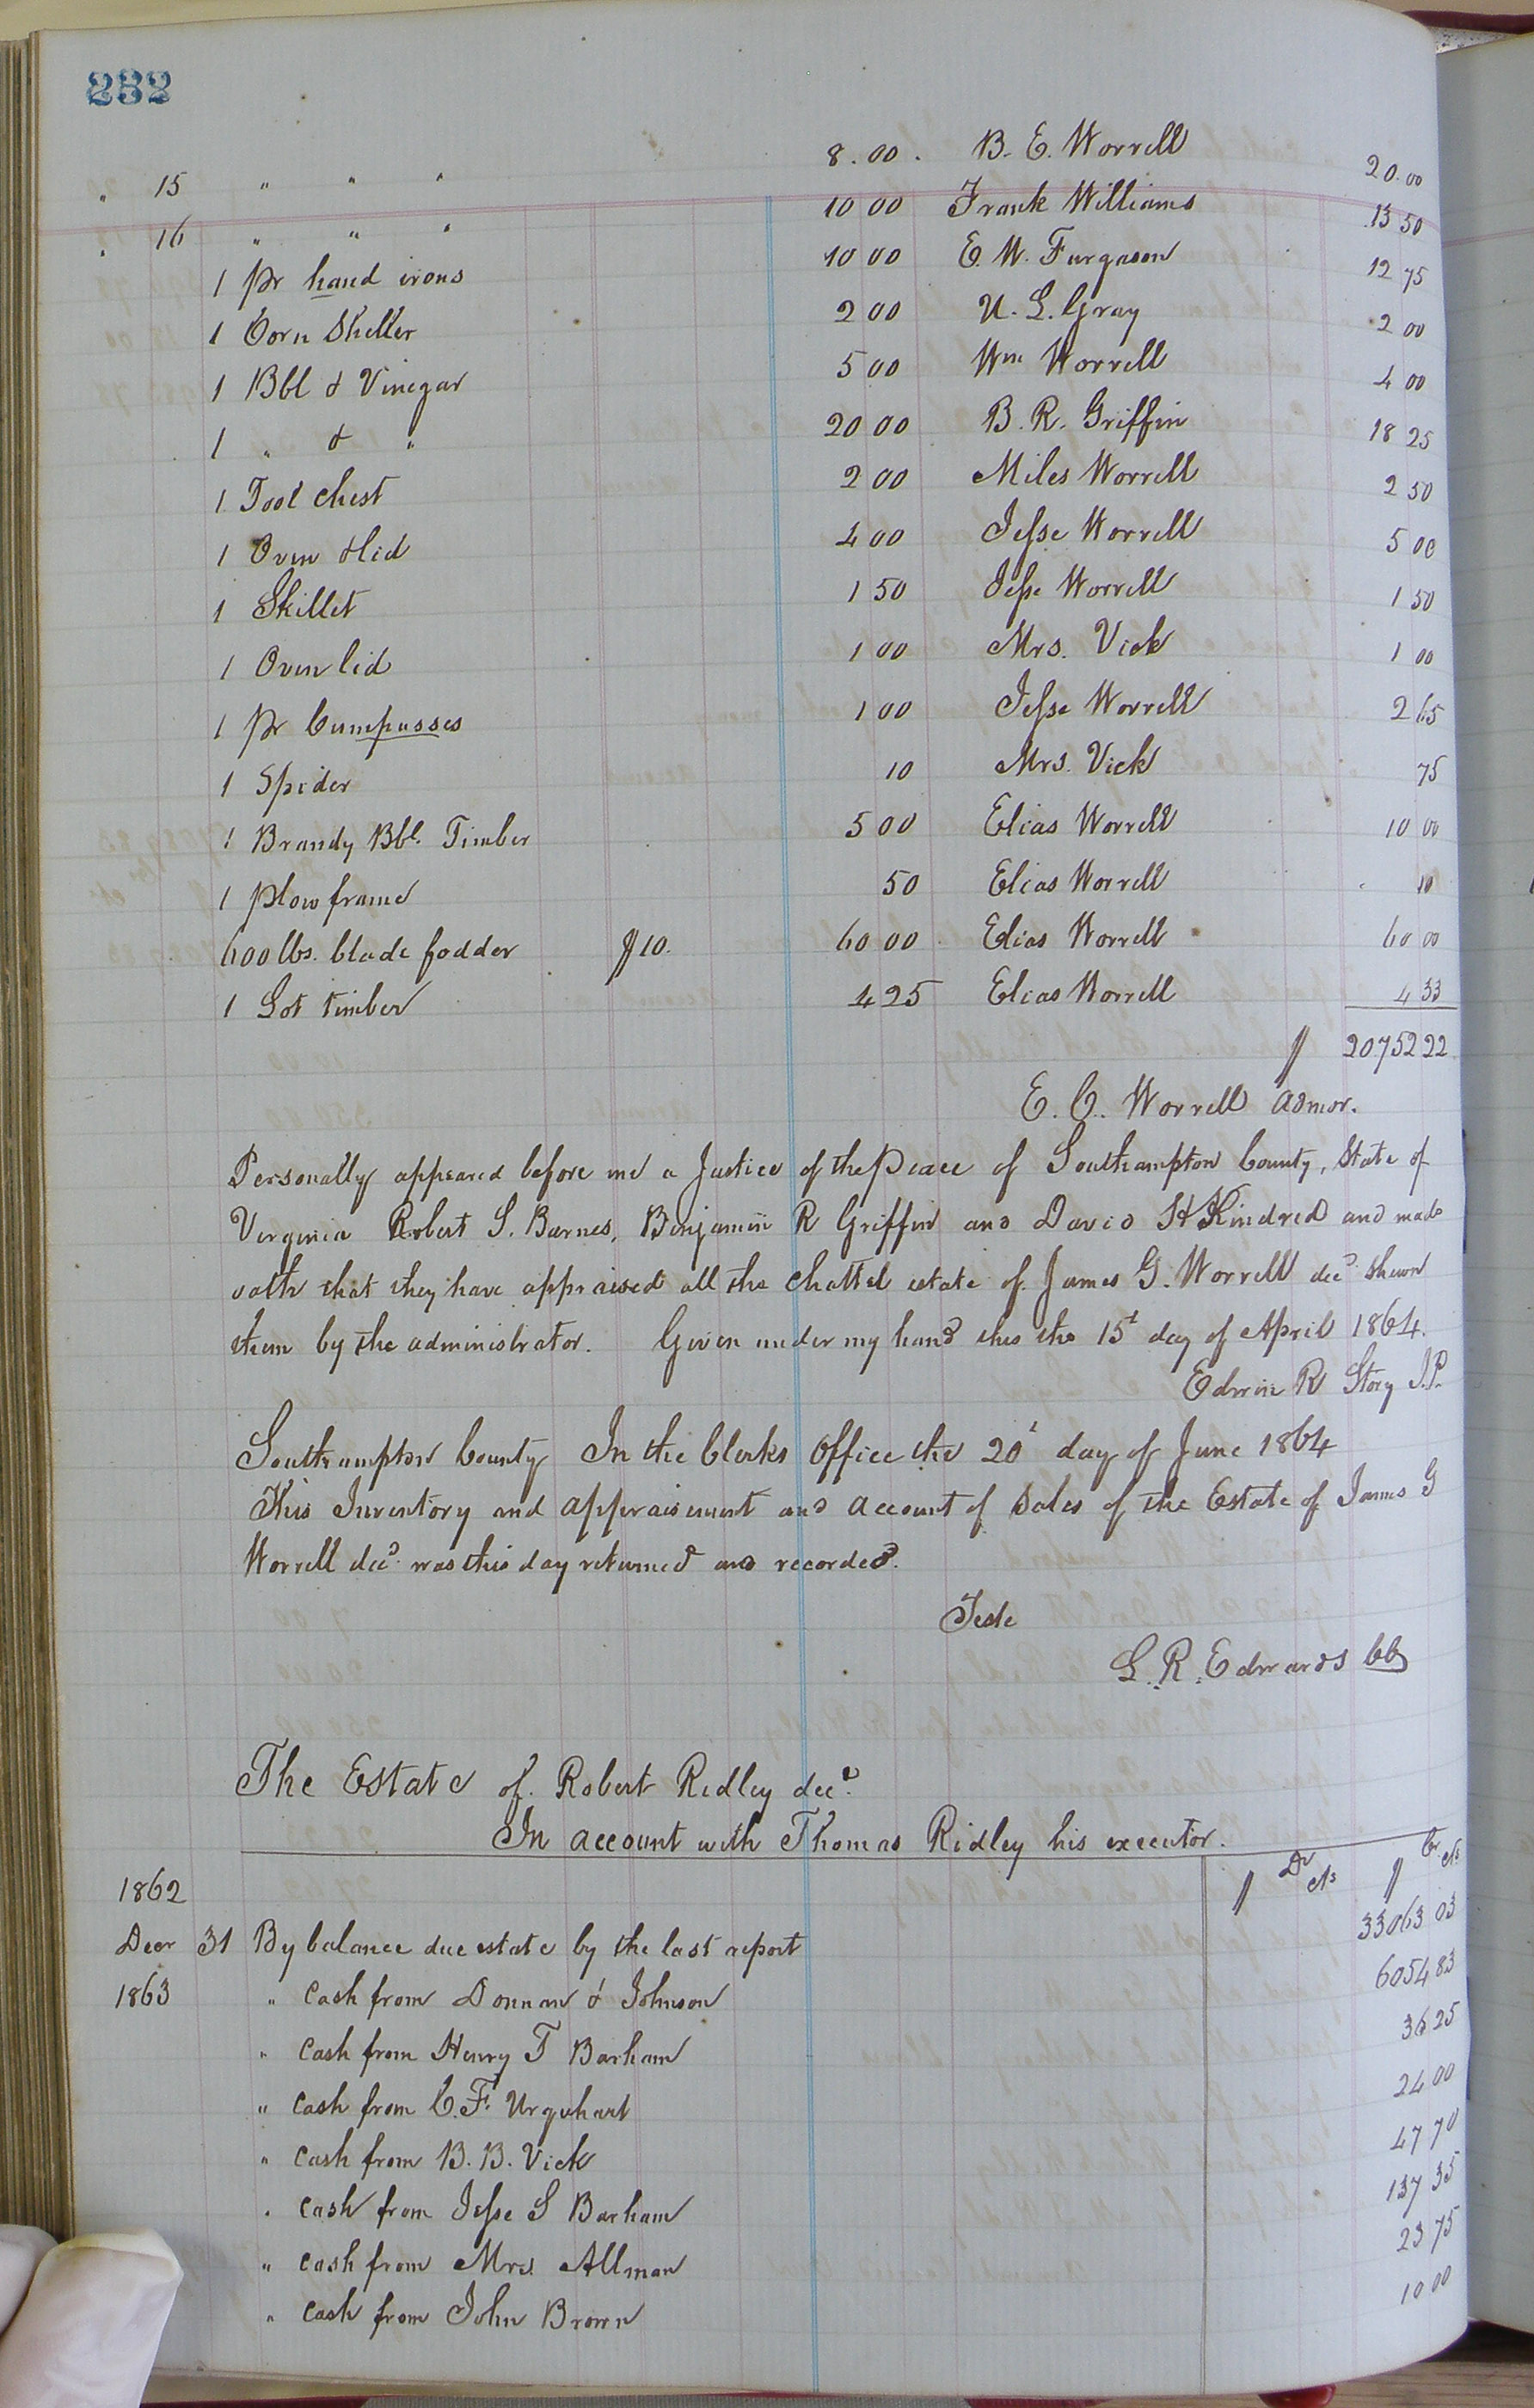 232
" 15 " " " 8.00. B. E. Worrell 20.00
" 16 " " " 10 00 Frank Williams 13 50
1 pr hand irons 10 00 E. W. Furgason 12 75
1 Corn Sheller 2 00 U. L. Gray 2 00
1 Bbl & Vinegar 5 00 Wm Worrell 4 00
1 " & " 20 00 B. R. Griffin 18 25
1 Tool chest 2 00 Miles Worrell 2 50
1 Oven & lid 4 00 Jesse Worrell 5 00
1 Skillet 1 50 Jesse Worrell 1 50
1 Oven lid 1 00 Mrs. Vick 1 00
1 pr Cumpasses 1 00 Jesse Worrell 2 65
1 Spider 10 Mrs. Vick 75
1 Brandy Bbl. Timber 5 00 Elias Worrell 10 00
1 plow frame 50 Elias Worrell 10
600 lbs. blade fodder $10. 60 00 Elias Worrell 60 00
1 Lot timber 4 25 Elias Worrell 4 33
$ 20752 22
E. C. Worrell admor.
Personally appeared before me a Justice of the Peace of Southampton County, State of
Virginia Robert S. Barnes, Benjamin R Griffin and David H Kindred and made
oath that they have appraised all the chattel estate of James G. Worrell decd shewn
them by the administrator. Given under my hand this the 15t day of April 1864.
Edwin R Story J.P.
Southampton County In the Clerks Office the 20' day of June 1864
This Inventory and appraisement and account of sales of the Estate of James G
Worrell decd was this day returned and recorded.
Teste
L. R. Edwards CC
The Estate of Robert Ridley decd.
In account with Thomas Ridley his executor.
$ Dr cts $ Cr cts
1862
Decr 31 By balance due estate by the last report 33063 03
1863 " Cash from Donnan & Johnson 6054 83
" Cash from Henry T Barham 36 25
" Cash from C. F. Urquhart 24 00
" Cash from B. B. Vick 47 70
" Cash from Jesse S Barham 137 35
" Cash from Mrs. Allman 23 75
" Cash from John Brown 10 00